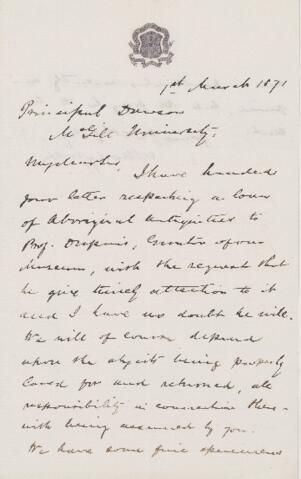 1st March 1871
Principal Dawson
McGill University,
My dear Sir, I have handed
your letter respecting a loan
of Aboriginal Antiquities to
Prof. Curator of our
Museum, with the request that
he give timely attention to it
and I have no doubt he will.
We will of course depend
upon the objects being properly
cared for and returned, all
responsibility in connection there-
with being assumed by you.
We have some fine specimens